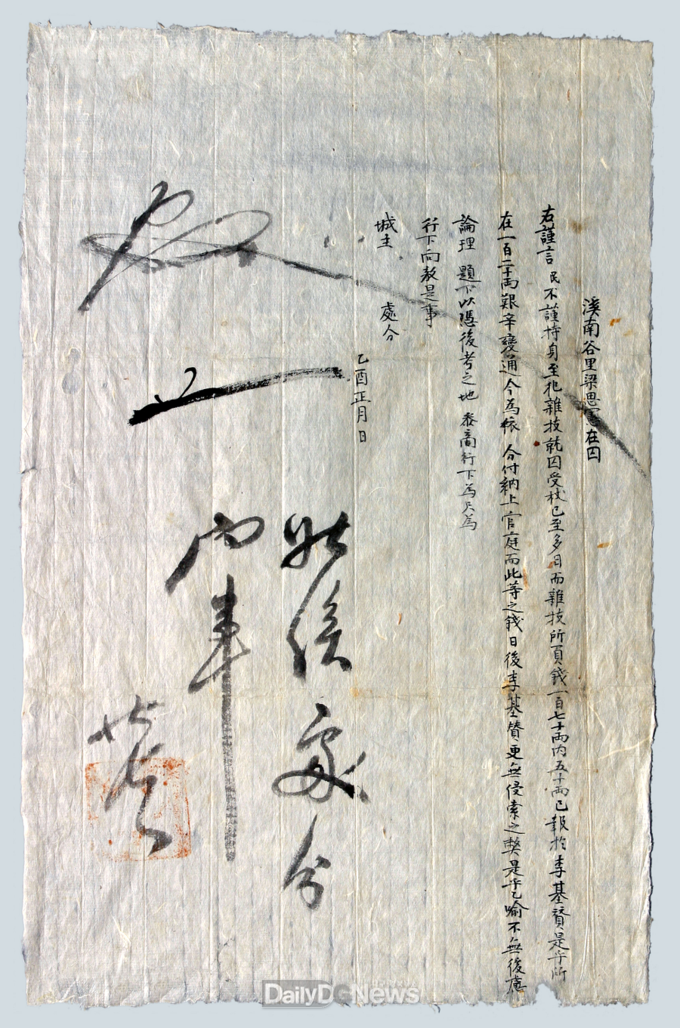 溪南谷里梁思憲在囚
右謹言 民不謹持身至犯雜技就囚受杖已至多日而雜技所負錢一百七十兩內五十兩已報於李基贊是乎所
在一百二十兩艱辛變通今爲依 分付納上 官庭而此等之錢日後李基贊更無侵索之弊是乎乙喩不無後慮
論理 題下以憑後考之地 參商行下爲只爲
行下向敎是事
城主 處分
乙酉正月 日
處分
內事
DailyDGNews